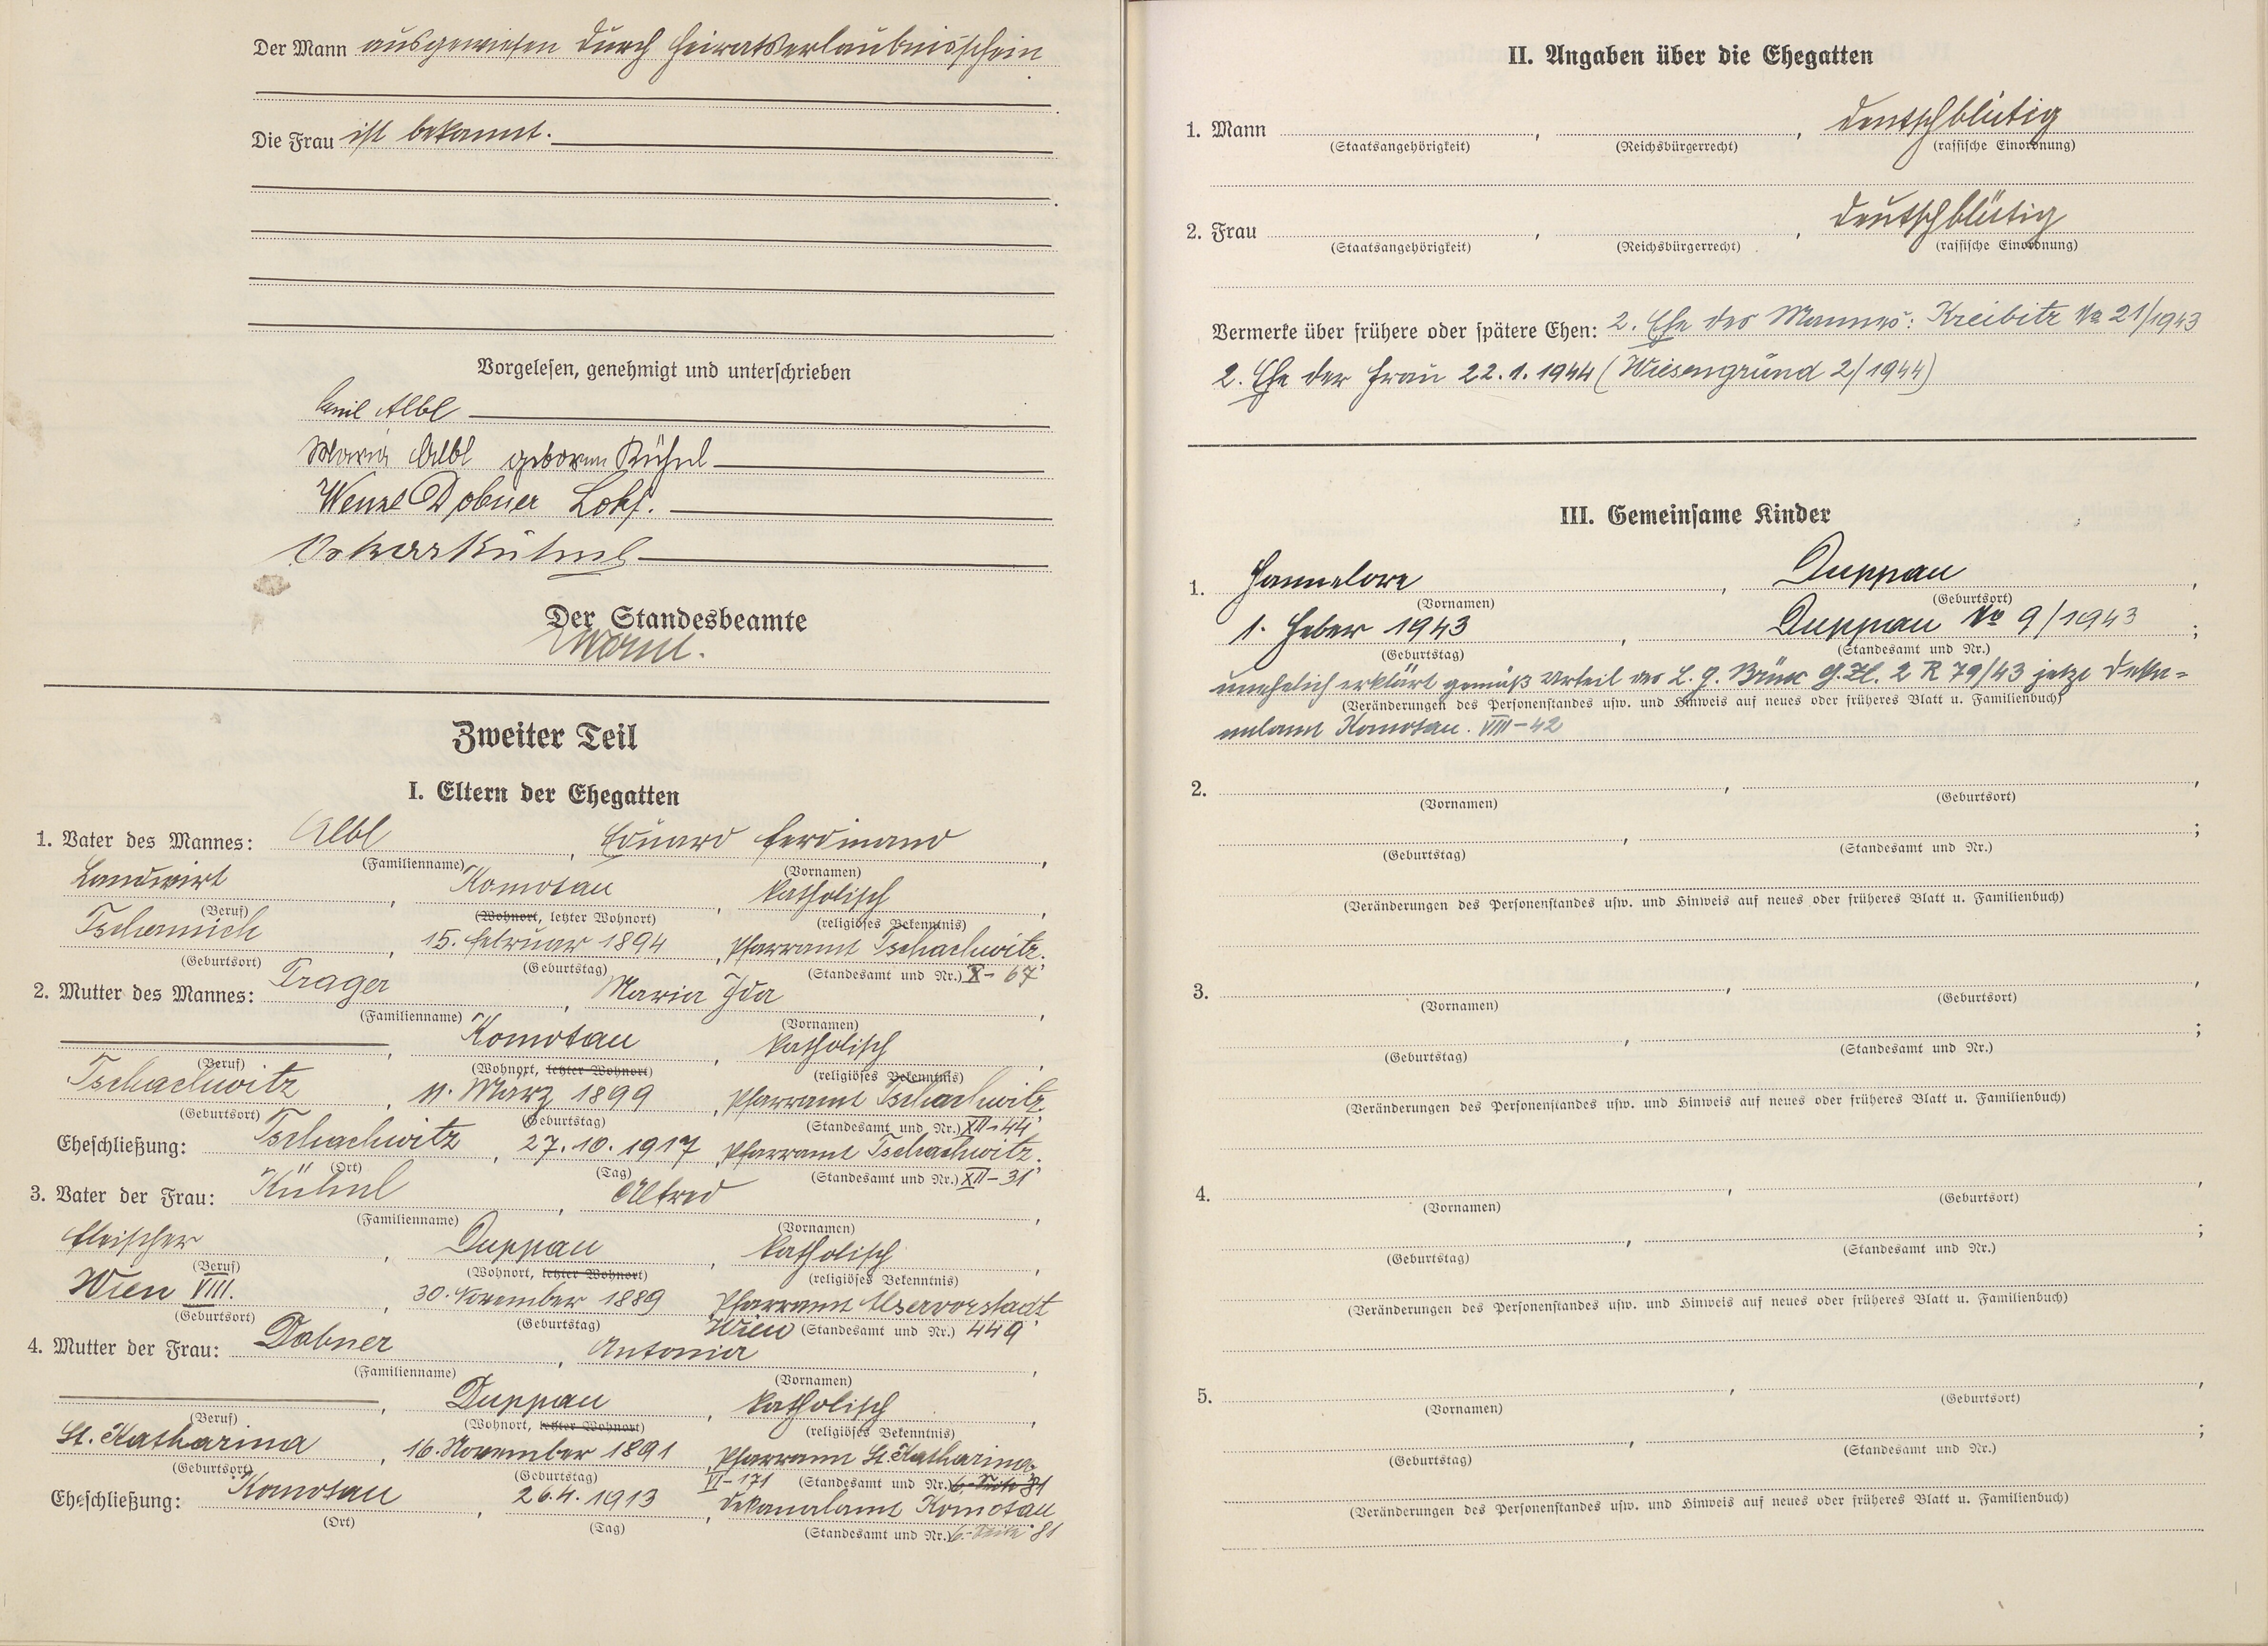 Der Mann ausgewiesen durch Heiratserlaubnisschein
Die Frau ist bekannt.
Vorgelesen, genehmigt und unterschrieben
Emil Albl
Maria Albl geboren Kühnl
Wenzl Dobner Lokf.
Oskar Kühnl
Der Standesbeamte
Zweiter Teil
I. Eltern der Ehegatten
1. Vater des Mannes: Albl, Eduard Ferdinand,
(Familienname) (Vornamen)
Landwirt, Komotau, katholisch,
(Beruf) (Wohnort, letzter Wohnort) (religiöses Bekenntnis)
Tschermich, 15. Februar 1894, Pfarramt Tschachwitz.
(Geburtsort) (Geburtstag) (Standesamt und Nr.) X-67
2. Mutter des Mannes: Trager, Maria Ida,
(Familienname) (Vornamen)
Komotau, katholisch,
(Beruf) (Wohnort, letzter Wohnort) (religiöses Bekenntnis)
Tschachwitz, 11. März 1899, Pfarramt Tschachwitz.
(Geburtsort) (Geburtstag) (Standesamt und Nr.) XII-44
Eheschließung: Tschachwitz, 27.10.1917, Pfarramt Tschachwitz.
(Ort) (Tag) (Standesamt und Nr.) XII-31
3. Vater der Frau: Kühnl, Alfred,
(Familienname) (Vornamen)
Fleischer, Duppau, katholisch,
(Beruf) (Wohnort, letzter Wohnort) (religiöses Bekenntnis)
Wien VIII., 30. November 1889 Pfarramt Alservorstadt
(Geburtsort) (Geburtstag) Wien (Standesamt und Nr.) 449
4. Mutter der Frau: Dobner, Antonia,
(Familienname) (Vornamen)
Duppau, katholisch,
(Beruf) (Wohnort, letzter Wohnort) (religiöses Bekenntnis)
St. Katharina, 16. November 1891, Pfarramt St. Katharina
(Geburtsort) (Geburtstag) VI-171 (Standesamt und Nr.) 6.-Seite 81
Eheschließung: Komotau, 26.4.1913, Dekanalamt Komotau
(Ort) (Tag) (Standesamt und Nr.) 6.-Seite 81
II. Angaben über die Ehegatten
1. Mann , , deutschblütig
(Staatsangehörigkeit) (Reichsbürgerrecht) (rassische Einordnung)
2. Frau , , deutschblütig
(Staatsangehörigkeit) (Reichsbürgerrecht) (rassische Einordnung)
Vermerke über frühere oder spätere Ehen: 2. Ehe des Mannes: Kreibitz No 21/1943
2. Ehe der Frau 22.1.1944 (Wiesengrund 2/1944)
III. Gemeinsame Kinder
1. Hannelore, Duppau,
(Vornamen) (Geburtsort)
1. Feber 1943, Duppau No 9/1943;
(Geburtstag) (Standesamt und Nr.)
unehelich erklärt gemäß Urteil des L.G. Brüx G.Zl. 2 R 79/43 jetzt Deka=
(Veränderungen des Personenstandes usw. und Hinweis auf neues oder früheres Blatt u. Familienbuch)
nalamt Komotau. VIII-42
2. , ,
(Vornamen) (Geburtsort)
, ;
(Geburtstag) (Standesamt und Nr.)
(Veränderungen des Personenstandes usw. und Hinweis auf neues oder früheres Blatt u. Familienbuch)
3. , ,
(Vornamen) (Geburtsort)
, ;
(Geburtstag) (Standesamt und Nr.)
(Veränderungen des Personenstandes usw. und Hinweis auf neues oder früheres Blatt u. Familienbuch)
4. , ,
(Vornamen) (Geburtsort)
, ;
(Geburtstag) (Standesamt und Nr.)
(Veränderungen des Personenstandes usw. und Hinweis auf neues oder früheres Blatt u. Familienbuch)
5. , ,
(Vornamen) (Geburtsort)
, ;
(Geburtstag) (Standesamt und Nr.)
(Veränderungen des Personenstandes usw. und Hinweis auf neues oder früheres Blatt u. Familienbuch)